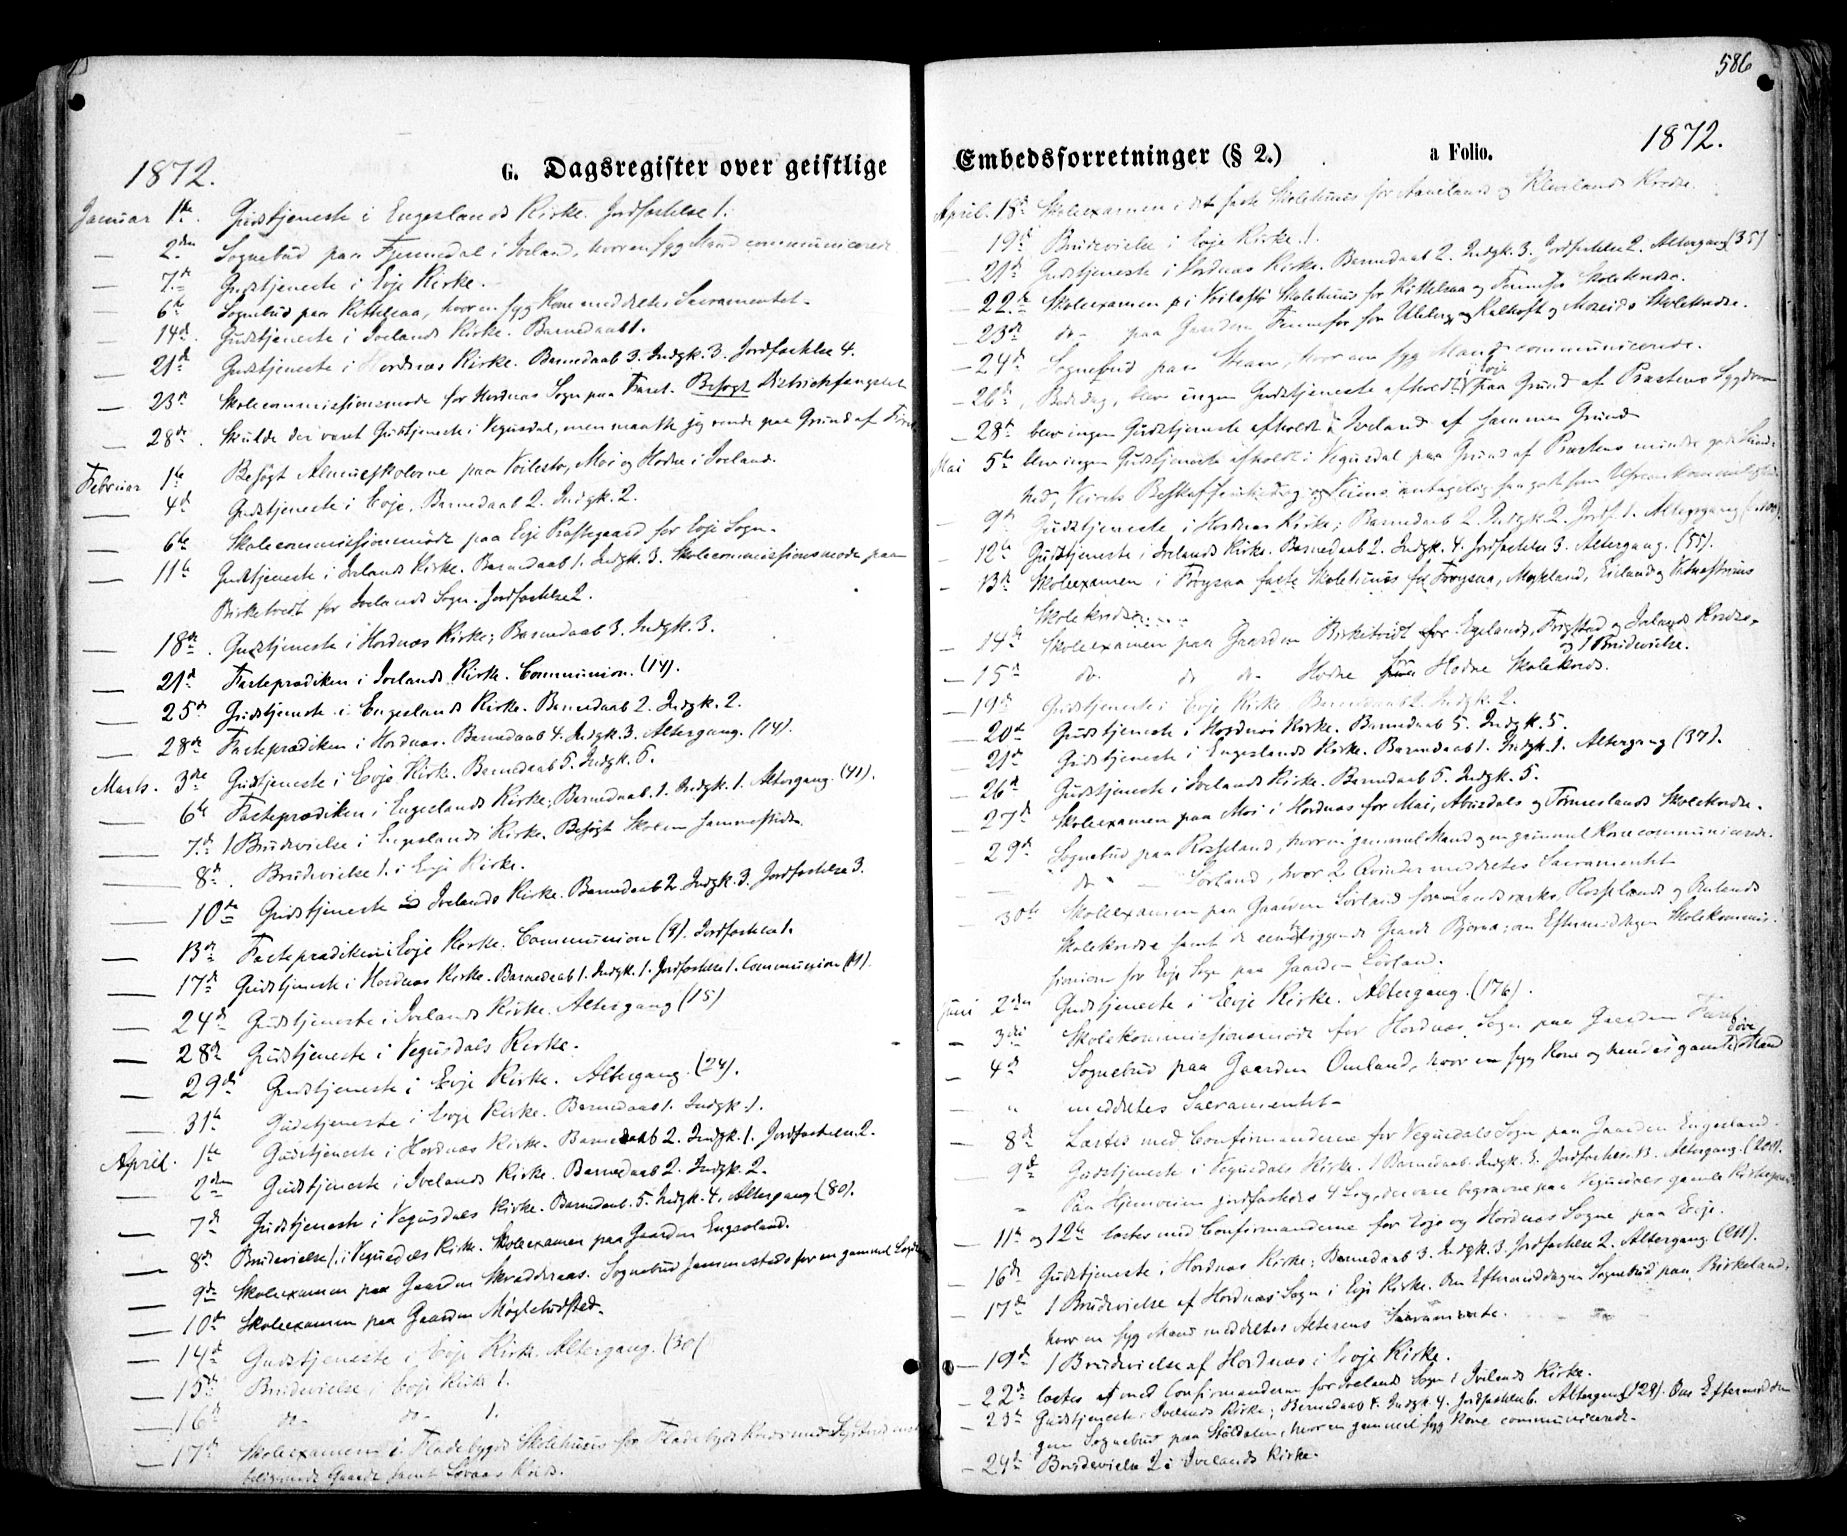 586
1872.
G. Dagsregister over geistlige
Januar 1ste. Gudstjeneste i Engeslands Kirke. Jordfæstelse 1.
— 2den Sognebud paa Fjermedal i Iveland, hvor en syg Mand communicerede
— 7de Gudstjeneste i Evje Kirke.
— 6te Sognebud paa Kittelsaa, hvor en syg Kone meddeltes Sacramentet.
— 14de. Gudstjeneste i Ivelands Kirke. Barnedaab 1.
— 21de Gudstjeneste i Hordnæs Kirke. Barnedaab 3. Indgk. 3. Jordfæstelse 4.
— 23de Skolecommissionsmøde for Hordnæs Sogn paa Faret. Besøgt Distriktsfængslet
— 28de. Skulde der været Gudstjeneste i Vegusdal, men maatte jeg vende paa Grund af
Februar 1ste Besøgt Almueskolerne paa Voilestø, Moi og Hodne i Iveland.
— 4de Gudstjeneste i Evje. Barnedaab 2. Indgk. 2.
— 6te Skolecommissionsmøde paa Evje Præstegaard for Evje Sogn.
— 11te Gudstjeneste i Ivelands Kirke. Barnedaab 1. Indgk. 3. Skolecommissionsmøde paa
Birketvedt for Ivelands Sogn. Jordfæstelse 2.
— 18de. Gudstjeneste i Hordnæs Kirke; Barnedaab 3. Indgk. 3.
— 21de Fasteprædiken i Ivelands Kirke. Communion. (14).
— 25de Gudstjeneste i Engeslands Kirke. Barnedaab 2. Indgk. 2.
— 28de Fasteprædiken i Hordnæs. Barnedaab 4. Indgk. 3. Altergang. (14).
Marts. 3die Gudstjeneste i Evje Kirke. Barnedaab 5. Indgk. 5.
— 6te Fasteprædiken i Engeslands Kirke; Barnedaab. 1. Indgk. 1. Altergang. (41).
— 7de 1 Brudevielse i Engeslands Kirke. Besøgt Skolen sammesteds.
— 8de. Brudevielse 1. i Evje Kirke.
— 10de Gudstjeneste i Ivelands Kirke. Barnedaab 2. Indgk. 3. Jordfæstelse 3.
— 13de Fasteprædiken i Evje Kirke. Communion (8). Jordfæstelse 1.
— 17de Gudstjeneste i Hordnæs Kirke. Barnedaab 1. Indgk. 1. Jordfæstelse 1. Communion
— 24de Gudstjeneste i Ivelands Kirke. Altergang (15)
— 28de Gudstjeneste i Vegusdals Kirke.
— 29de Gudstjeneste i Evje Kirke. Altergang. (24).
— 31te Gudstjeneste i Evje Kirke. Barnedaab 1. Indgk. 1.
April. 1ste Gudstjeneste i Hordnæs Kirke. Barnedaab 2. Indgk. 1. Jordfæstelse 2.
— 2den Gudstjeneste i Ivelands Kirke. Barnedaab 2. Indgk. 2.
— 7de Gudstjeneste i Vegusdals Kirke. Barnedaab. 5. Indgk. 4. Altergang (80).
— 8de Brudevielse 1. i Vegusdals Kirke. Skoleexamen paa Gaarden Engesland.
— 9de Skoleexamen paa Gaarden Skreddernæs. Sognebud sammesteds for en gammel
— 10de Skoleexamen paa Gaarden Møglebudsted.
— 14de Gudstjeneste i Evje Kirke. Altergang. (30)
— 15de Brudevielse i Evje Kirke 1.
— 16de do do 1.
— 17de Skoleexamen i Fladebygds Skolehuus for Fladebygds Kreds med
beliggende Gaarde samt Kreds.
1872.
Embedsforretninger (§ 2.) a Folio.
April. 18de Skoleexamen i det faste Skolehuus for Aanelands og Klevelands Kredse.
— 19de Brudevielse i Evje Kirke. 1.
— 21de Gudstjeneste i Hordnæs Kirke. Barnedaab 2. Indgk. 3. Jordfæstelse 2. Altergang (35)
— 22de Skoleexamen i Voilestø Skolehuus for Kittelsaa og Fennefos Skolekredse.
— 23de do paa Gaarden Fennefos for Uleberg og Kalhoft og Moseids Skolekredse.
— 24de Sognebud paa, hvor en syg Mand communicerede.
— 26de, Bededag, blev ingen Gudstjeneste afholdt i Evje paa Grund af Præstens Sygdom
— 28de blev ingen Gudstjeneste afholdt i Iveland af samme Grund
Mai 5te blev ingen Gudstjeneste afholdt i Vegusdal paa Grund af Præstens mindre gode Sund-
hed, Veirets Beskaffenhed og Veiens saagodtsom Ufremkommelighed
— 9de Gudstjeneste i Hordnæs Kirke; Barnedaab 2. Indgk. 2. Jordf. 1. Altergang
— 12te Gudstjeneste i Ivelands Kirke. Barnedaab 2. Indgk. 4. Jordfæstelse 3. Altergang. (55).
— 13de Skoleexamen i Frøysaa faste Skolehuus for Frøysaa, Mykland, Eieland og
Skolekredse.
— 14de Skoleexamen paa Gaarden Birketvedt for Egelands, Frigstad og Ivelands Kredse.
— 15de do do do Hodne for Hodne Skolekreds. og 1 Brudevielse.
— 19de Gudstjeneste i Evje Kirke. Barnedaab 2. Indgk. 2.
— 20de Gudstjeneste i Hordnæs Kirke. Barnedaab 5. Indgk. 5.
— 21de Gudstjeneste i Engeslands Kirke. Barnedaab 1. Indgk. 1. Altergang (37).
— 26de Gudstjeneste i Ivelands Kirke. Barnedaab 5. Indgk. 5.
— 27de Skoleexamen paa Moi i Hordnæs for Moi, Abusdals og Tønneslands Skolekredse.
— 29de Sognebud paa Rosseland, hvor en gammel Mand og en gammel Kone communicerede.
do — Lørland, hvor 2 Qvinder meddeltes Sacramentet
— 30te Skoleexamen paa Gaarden Lørland for Landsværks, Rosselands og
Skolekredse samt de omliggende Gaarde; om Eftermiddagen Skolekommis-
sionen for Evje Sogn paa Gaarden Lørland.
Juni 2den Gudstjeneste i Evje Kirke. Altergang. (176).
— 3die Skolekommissionsmøde for Hordnæs Sogn paa Gaarden Faret
— 4de Sognebud paa Gaarden Omland, hvor en syg Kone og hendes gamle døve Mand
— " meddeltes Sacramentet
— 8de Læstes med Confirmanderne for Vegusdals Sogn paa Gaarden Engesland.
— 9de Gudstjeneste i Vegusdals Kirke. 1 Barnedaab. Indgk. 3. Jordfæstelse. 13. Altergang.
" Paa Hjemveien jordfæstedes 4 Lig, der vare begravne paa Vegusdals gamle
— 11te og 12te læstes med Confirmanderne for Evje og Hordnæs Sogne paa Evje.
— 16de Gudstjeneste i Hordnæs Kirke; Barnedaab 3. Indgk. 3. Jordfæstelse 2. Altergang.
— 17de 1 Brudevielse af Hordnæs Sogn i Evje Kirke. Om Eftermiddagen Sognebud paa Birkeland,
hvor en syg Mand meddeltes Alterens Sacramente.
— 19de 1 Brudevielse af Hordnæs i Evje Kirke.
— 22de læstes med Confirmanderne for Ivelands Sogn i Ivelands Kirke.
— 23de Gudstjeneste i Ivelands Kirke; Barnedaab 4. Indgk. 4. Jordfæstelse 6. Altergang (129). Om Eftermidda-
gen Sognebud paa Støldalen, hvor en gammel syg Kone communicerede.
— 24de Brudevielse 2 i Ivelands Kirke.